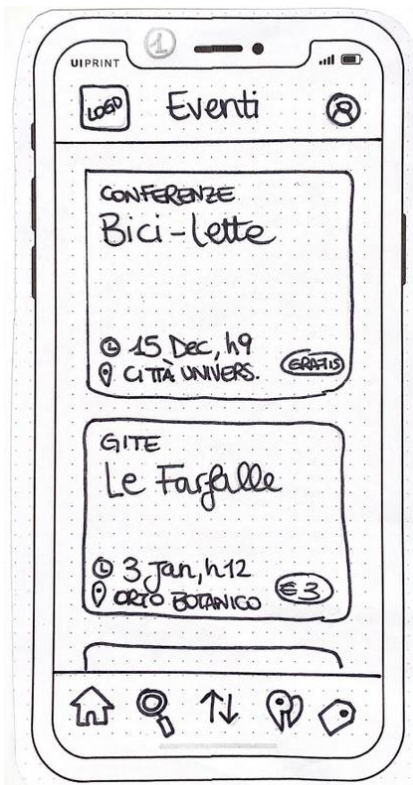 UIPRINT
1
LOGO
Eventi
CONFERENZE
Bici-lette
15 Dec, h9
CITTÀ UNIVERS.
GRATIS
GITE
Le Farfalle
3 Jan, h12
ORTO BOTANICO
€3